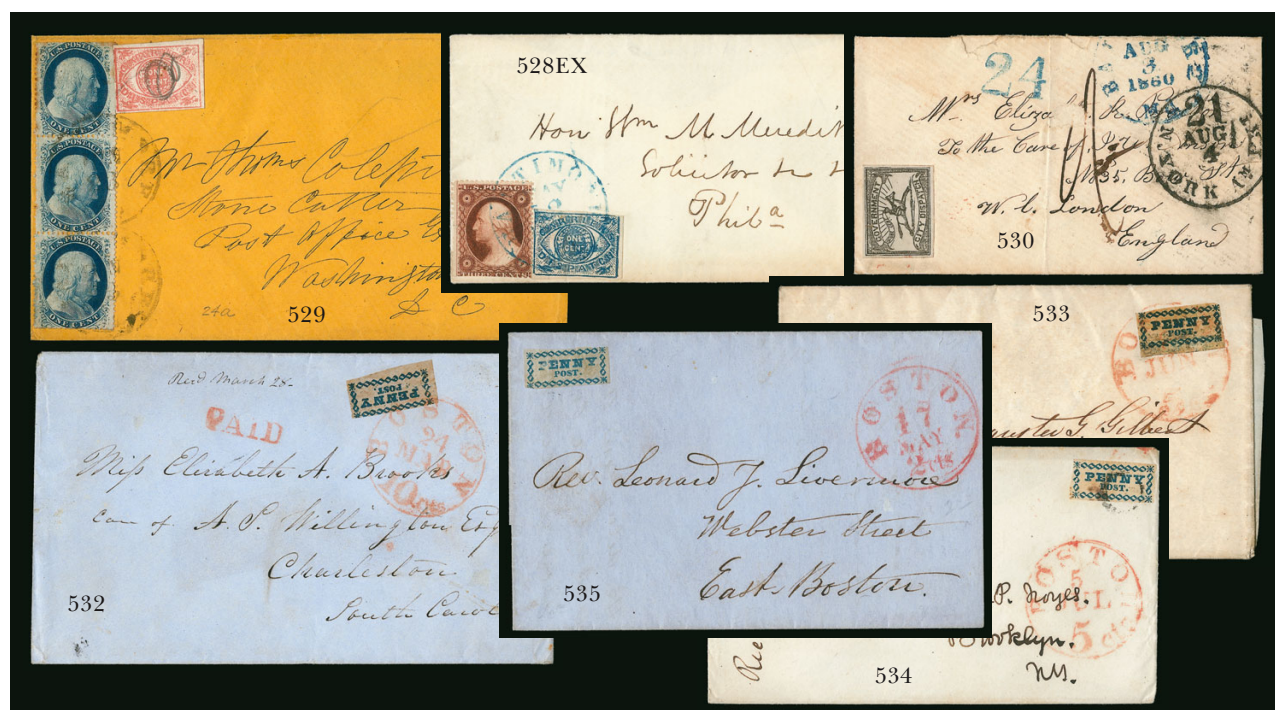 U.S. POSTAGE
ONE CENT
U.S. POSTAGE
ONE CENT
U.S. POSTAGE
ONE CENT
Mr Thoms
Stone Cutter
Post Office
Washington
D C
24a
529
528EX
Hon Wm M Meredit
Solicitor
Phila
TIMO
U.S. POSTAGE
THREE CENTS
ONE
CENT
24
AUG
3
1860
Mrs Eliza
To the Care of
No 35.
W. C. London
England
21
AUG
4
GOVERNMENT
530
533
BO
JUN
PENNY
POST.
Gilbert
Recd March 28
PAID
PENNY
POST.
BOSTON
24
MAY
10cts
Miss Elizabeth A. Brooks
Care of A. S. Willington Esq
Charleston
South Caro
532
PENNY
POST.
BOSTON
17
MAY
2cts
Rev. Leonard J. Livermore
Webster Street
East Boston.
535
PENNY
POST.
BOSTO
5
JUL
5 cts
P. Noyes.
Brooklyn.
NY.
534